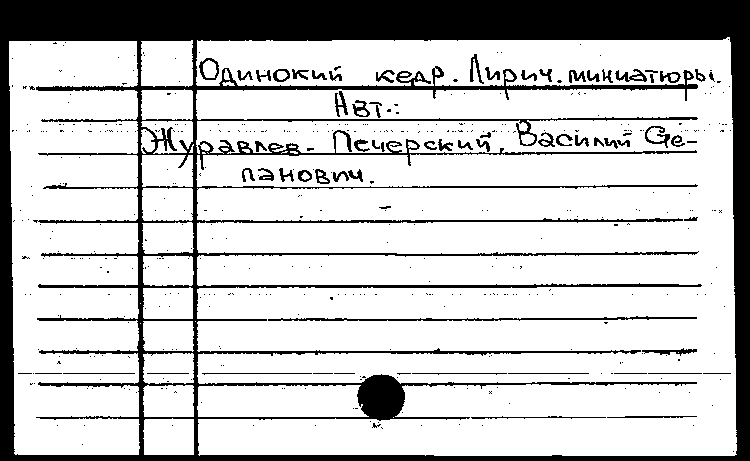 Одинокий кедр. Лирич. миниатюры.
Авт.:
Журавлев-Печерский, Василий Сте-
панович.